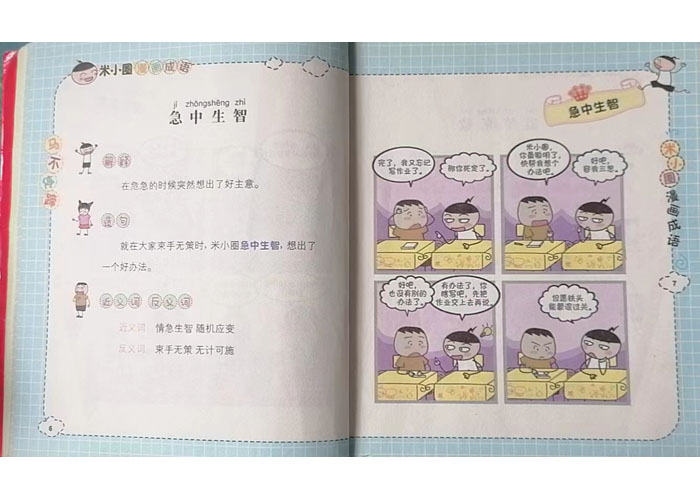 米小圈漫画成语
jí zhōngshēng zhì
急中生智
马不停蹄
解释
在危急的时候突然想出了好主意。
造句
就在大家束手无策时，米小圈急中生智，想出了
一个好办法。
近义词 反义词
近义词 情急生智 随机应变
反义词 束手无策 无计可施
6
急中生智
完了，我又忘记
写作业了。
那你死定了。
米小圈，
你最聪明了，
快帮我想个
办法吧。
好吧，
容我三思。
好吧，
也没有别的
办法了。
有办法了，你
瞎写吧，先把
作业交上去再说。
但愿铁头
能蒙混过关。
米小圈漫画成语
7